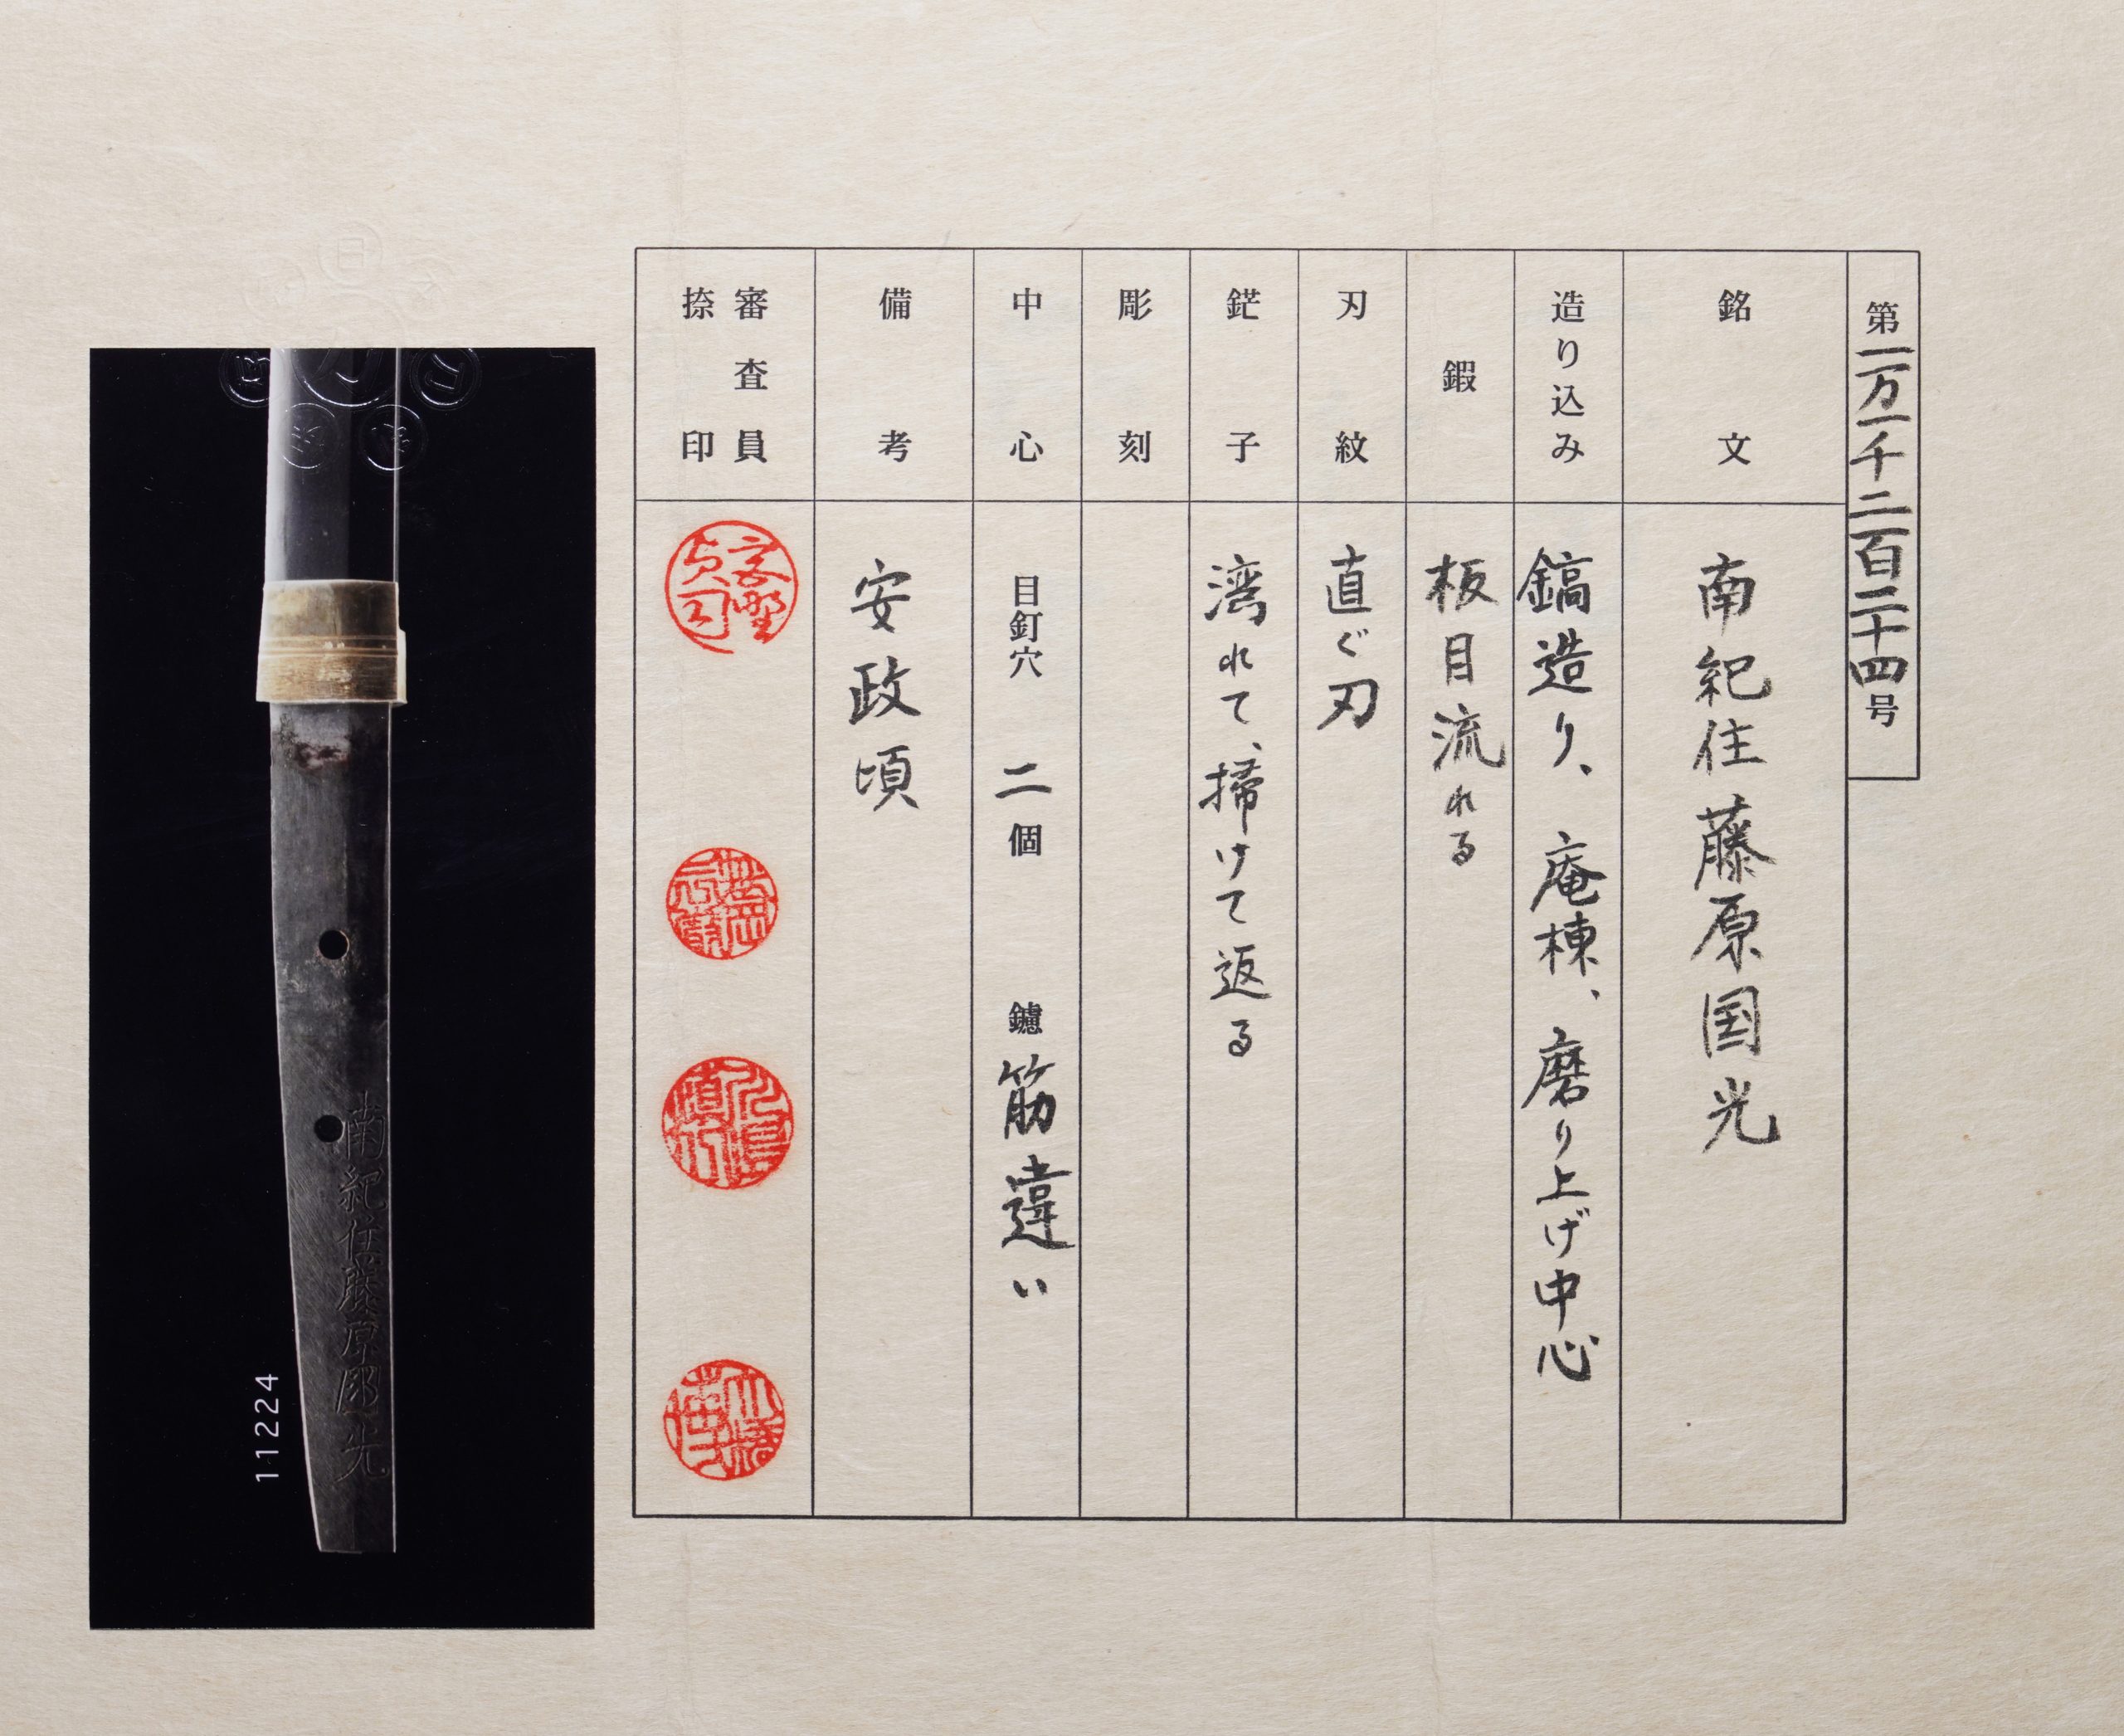 第一万一千二百二十四号
銘文
南紀住藤原国光
造り込み
鎬造り、庵棟、磨り上げ中心
鍜
板目流れる
刃紋
直ぐ刃
鋩子
湾れて、掃けて返る
彫刻
中心
目釘穴 二個 鑢 筋違い
備考
安政頃
審査員
捺印
南紀住藤原国光
11224